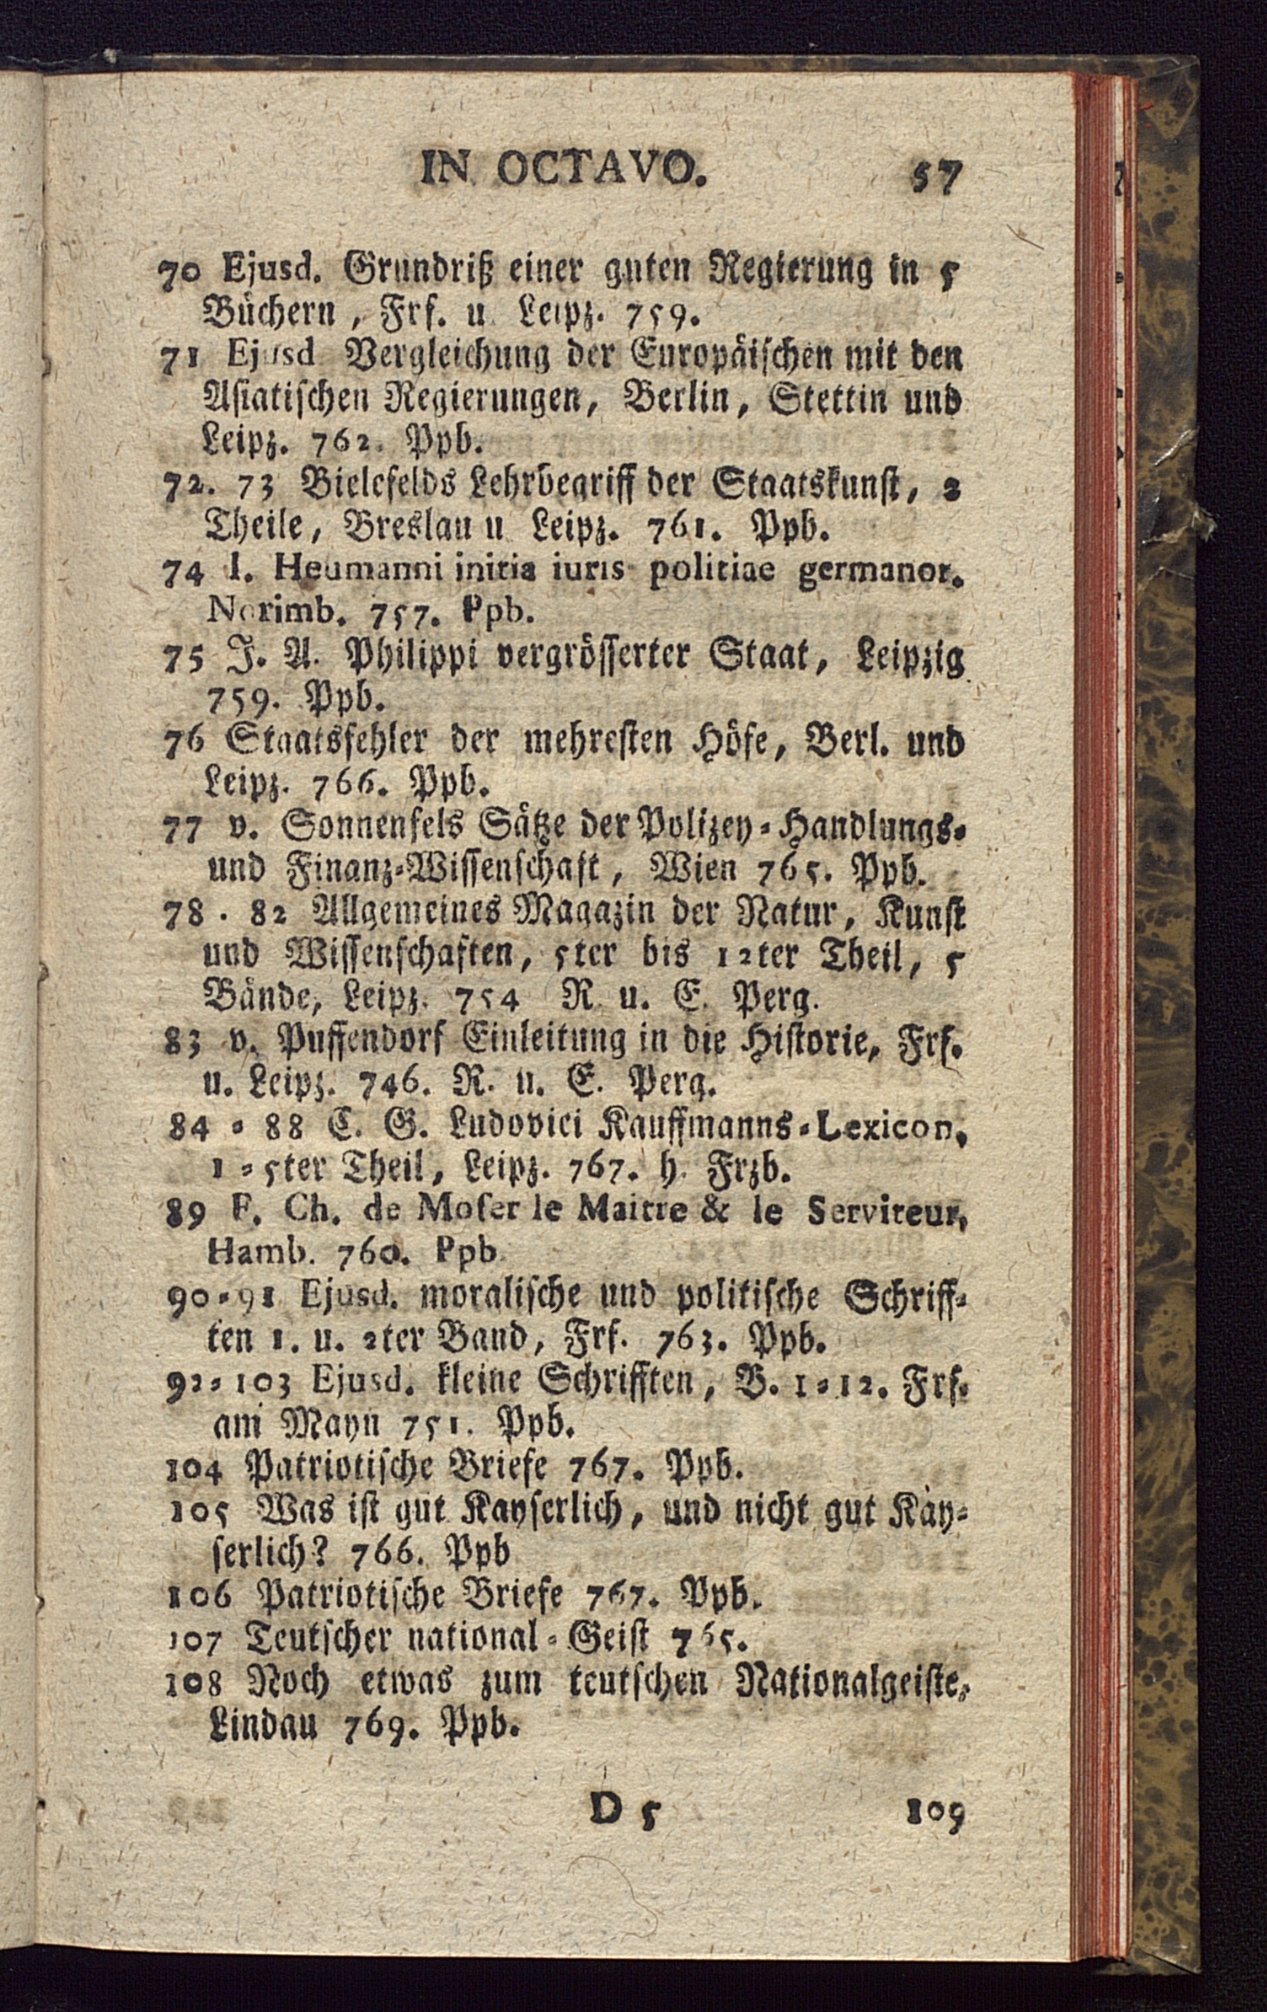 IN OCTAVO. 57
70 Ejusd. Grundriß einer guten Regierung in 5
Büchern, Frf. u Leipz. 759.
71 Ejusd Vergleichung der Europäischen mit den
Asiatischen Regierungen, Berlin, Stettin und
Leipz. 762. Ppb.
72. 73 Bielefelds Lehrbegriff der Staatskunst, 2
Theile, Breslau u Leipz. 761. Ppb.
74 I. Heumanni initia iuris politiae germanor.
Norimb. 757. Ppb.
75 J. A. Philippi vergrösserter Staat, Leipzig
759. Ppb.
76 Staatsfehler der mehresten Höfe, Berl. und
Leipz. 766. Ppb.
77 v. Sonnenfels Sätze der Polizey-Handlungs-
und Finanz-Wissenschaft, Wien 765. Ppb.
78 - 82 Allgemeines Magazin der Natur, Kunst
und Wissenschaften, 5ter bis 12ter Theil, 5
Bände, Leipz. 754 R. u. E. Perg.
83 v. Puffendorf Einleitung in die Historie, Frf.
u. Leipz. 746. R. u. E. Perg.
84 - 88 C. G. Ludovici Kauffmanns-Lexicon,
1 - 5ter Theil, Leipz. 767. h. Frzb.
89 F. Ch. de Moser le Maitre & le Serviteur,
Hamb. 760. Ppb
90-91 Ejusd. moralische und politische Schriff-
ten 1. u. 2ter Band, Frf. 763. Ppb.
92-103 Ejusd. kleine Schrifften, B. 1-12. Frf.
am Mayn 751. Ppb.
104 Patriotische Briefe 767. Ppb.
105 Was ist gut Kayserlich, und nicht gut Kay-
serlich? 766. Ppb
106 Patriotische Briefe 767. Ppb.
107 Teutscher national-Geist 765.
108 Noch etwas zum teutschen Nationalgeiste,
Lindau 769. Ppb.
D 5 109